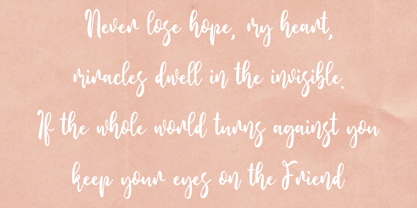 Never lose hope, my heart,
miracles dwell in the invisible.
If the whole world turns against you
keep your eyes on the Friend